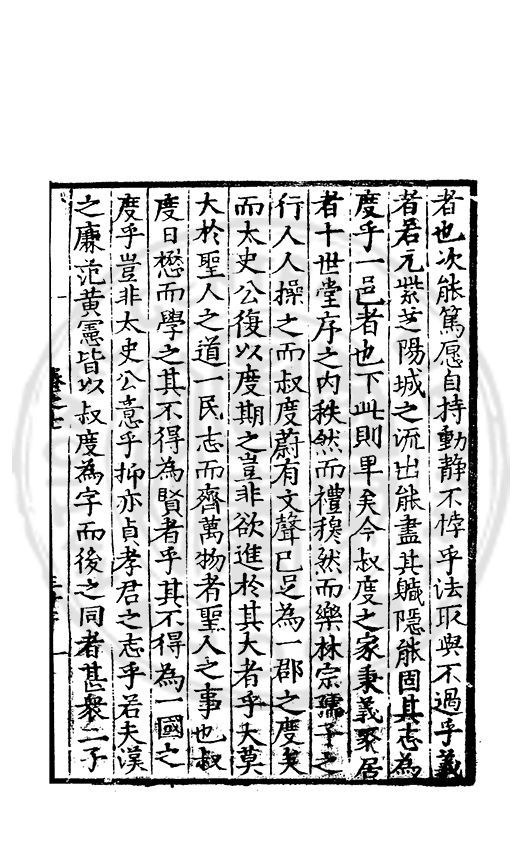 者也次能篤愿自持動靜不悖乎法取與不過乎義
者若元紫芝陽城之流出能盡其職隱能固其志為
度乎一邑者也下此則卑矣今叔度之家秉義聚居
者十世堂序之內秩然而禮穆然而樂林宗孺子之
行人人操之而叔度蔚有文聲已足為一郡之度矣
而太史公復以度期之豈非欲進於其大者乎大莫
大於聖人之道一民志而齊萬物者聖人之事也叔
度日懋而學之其不得為賢者乎其不得為一國之
度乎豈非太史公意乎抑亦貞孝君之志乎若夫漢
之廉范黃憲皆以叔度為字而後之同者甚衆二子